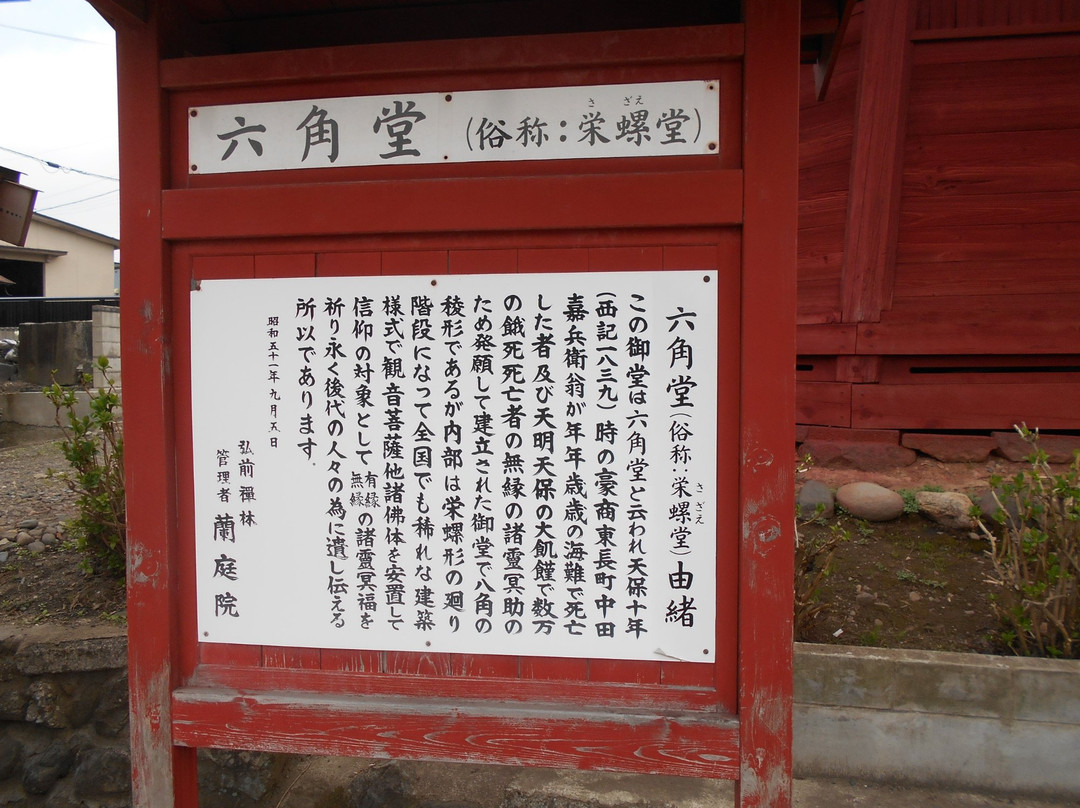 六角堂(俗称:栄螺堂)
さざえ
六角堂(俗称:栄螺堂)由緒
さざえ
この御堂は六角堂と云われ天保十年
(西記一八三九)時の豪商東長町中田
嘉兵衛翁が年年歳歳の海難で死亡
した者及び天明天保の大飢饉で数万
の餓死死亡者の無縁の諸霊冥助の
ため発願して建立された御堂で八角の
稜形であるが内部は栄螺形の廻り
階段になって全国でも稀れな建築
様式で観音菩薩他諸佛体を安置して
信仰の対象として有縁無縁の諸靈冥福を
祈り永く後代の人々の為に遺し伝える
所以であります.
昭和五十一年九月五日
弘前禪林
管理者 蘭庭院